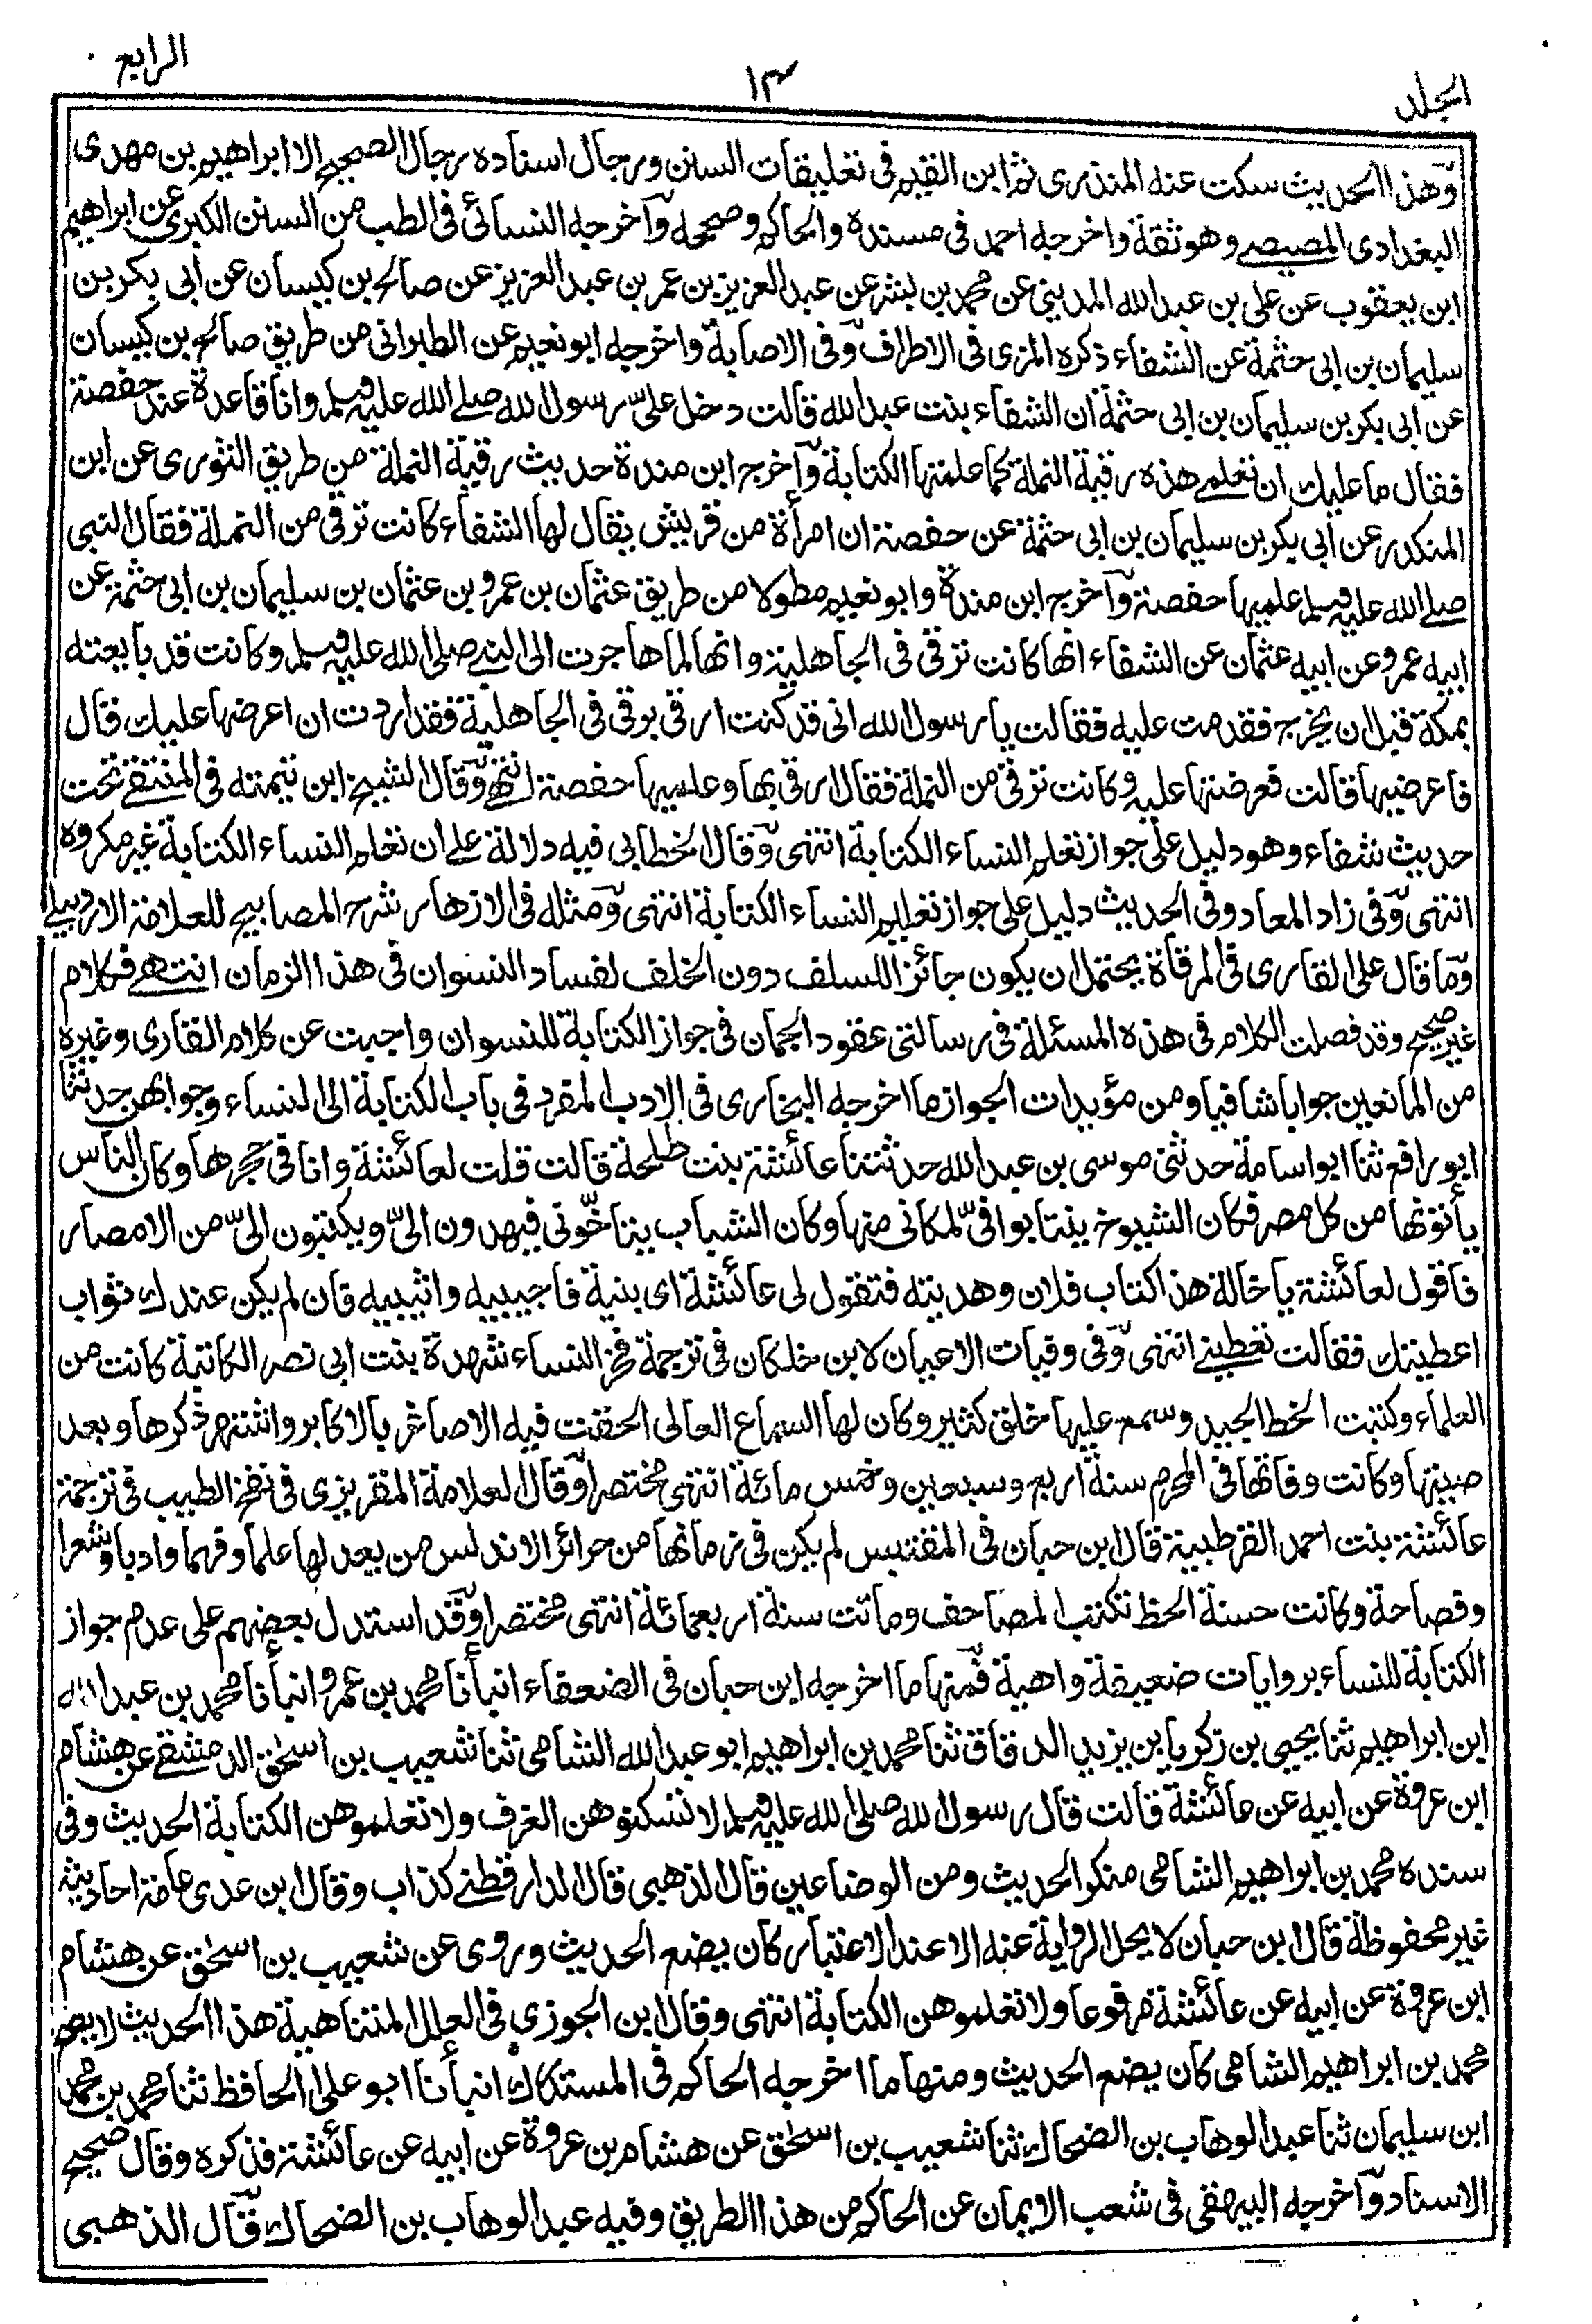 الجلد ١٣ الرابع
وهذا الحديث سكت عنه المنذرى ثم ابن القيم فى تعليقات السنن ورجال اسناده رجال الصحيح الا ابراهيم بن مهدى
البغدادى المصيصى وهو ثقة واخرجه احمد فى مسنده والحاكم وصححه وآخرجه النسائى فى الطب من السنن الكبرى عن ابراهيم
ابن يعقوب عن على بن عبدالله المدينى عن محمد بن بشر عن عبد العزيز بن عمر بن عبد العزيز عن صالح بن كيسان عن ابى بكر بن
سليمان بن ابى حثمة عن الشفاء ذكره المزى فى الاطراف وفى الاصابة واخرجه ابو نعيم عن الطبرانى من طريق صالح بن كيسان
عن ابى بكر بن سليمان بن ابى حثمة ان الشفاء بنت عبد الله قالت دخل على رسول الله صلى الله عليه وسلم وانا قاعدة عند حفصة
فقال ما عليك ان تعلمى هذه رقية النملة كما علمتها الكتابة وآخرج ابن مندة حديث رقية النملة من طريق الثورى عن ابن
المنكدر عن ابى بكر بن سليمان بن ابى حثمة عن حفصة ان امرأة من قريش يقال لها الشفاء كانت ترقى من النملة فقال النبى
صلى الله عليه وسلم علميها حفصة وآخرج ابن مندة وابو نعيم مطولا من طريق عثمان بن عمرو بن عثمان بن سليمان بن ابى حثمة عن
ابيه عمرو عن ابيه عثمان عن الشفاء انها كانت ترقى فى الجاهلية وانها لما هاجرت الى النبى صلى الله عليه وسلم وكانت قد بايعته
بمكة قبل ان يخرج فقدمت عليه فقالت يا رسول الله انى قد كنت ارقى برقى فى الجاهلية فقد اردت ان اعرضها عليك قال
فاعرضيها قالت فعرضتها عليه وكانت ترقى من النملة فقال ارقى بها وعلميها حفصة انتهى وقال الشيخ ابن تيمية فى المنتقى تحت
حديث شفاء وهو دليل على جواز تعلم النساء الكتابة انتهى وقال الخطابى فيه دلالة على ان تعلم النساء الكتابة غير مكروه
انتهى وفى زاد المعاد وفى الحديث دليل على جواز تعليم النساء الكتابة انتهى ومثله فى الازهار شرح المصابيح للعلامة الاردبيلى
وما قال على القارى فى المرقاة يحتمل ان يكون جائزا للسلف دون الخلف لفساد النسوان فى هذا الزمان انتهى فكلام
غير صحيح وقد فصلت الكلام فى هذه المسئلة فى رسالتى عقود الجمان فى جواز الكتابة للنسوان واجبت عن كلام القارى وغيره
من المانعين جوابا شافيا ومن مؤيدات الجواز ما اخرجه البخارى فى الادب المفرد فى باب الكتابة الى النساء وجوابهن حدثنا
ابو رافع ثنا ابو اسامة حدثنى موسى بن عبد الله حدثتنا عائشة بنت طلحة قالت قلت لعائشة وانا فى حجرها وكان الناس
يأتونها من كل مصر فكان الشيوخ ينتابوا فى لمكانى منها وكان الشباب يتأخونى فيهدون الى ويكتبون الى من الامصار
فاقول لعائشة يا خالة هذا كتاب فلان وهديته فتقول لى عائشة اى بنية فاجيبيه واثيبيه فان لم يكن عندك ثواب
اعطيتك فقالت تعطينى انتهى وفى وفيات الاعيان لابن خلكان فى ترجمة فخر النساء شهدة بنت ابى نصر الكاتبة كانت من
العلماء وكتبت الخط الجيد وسمع عليها خلق كثير وكان لها السماع العالى الحقت فيه الاصاغر بالاكابر واشتهر ذكرها وبعد
صيتها وكانت وفاتها فى المحرم سنة اربع وسبعين وخمس مائة انتهى مختصرا وقال العلامة المقريزى فى نفح الطيب فى ترجمة
عائشة بنت احمد القرطبية قال ابن حيان فى المقتبس لم يكن فى زمانها من حرائر الاندلس من يعد لها علما وفهما وادبا وشعرا
وفصاحة وكانت حسنة الخط تكتب المصاحف وماتت سنة اربعمائة انتهى مختصرا وقد استدل بعضهم على عدم جواز
الكتابة للنساء بروايات ضعيفة واهية فمنها ما اخرجه ابن حبان فى الضعفاء انبأنا محمد بن عمرو انبأنا محمد بن عبد الله
ابن ابراهيم ثنا يحيى بن زكريا بن يزيد الدقاق ثنا محمد بن ابراهيم ابو عبد الله الشامى ثنا شعيب بن اسحق الدمشقى عن هشام
ابن عروة عن ابيه عن عائشة قالت قال رسول الله صلى الله عليه وسلم لا تسكنوهن الغرف ولا تعلموهن الكتابة الحديث وفى
سنده محمد بن ابراهيم الشامى منكر الحديث ومن الوضاعين قال الذهبى قال الدارقطنى كذاب وقال ابن عدى عامة احاديثه
غير محفوظة قال ابن حبان لا يحل الرواية عنه الا عند الاعتبار كان يضع الحديث وروى عن شعيب بن اسحق عن هشام
ابن عروة عن ابيه عن عائشة مرفوعا ولا تعلموهن الكتابة انتهى وقال ابن الجوزى فى العلل المتناهية هذا الحديث لا يصح
محمد بن ابراهيم الشامى كان يضع الحديث ومنها ما اخرجه الحاكم فى المستدرك انبأنا ابو على الحافظ ثنا محمد بن محمد
ابن سليمان ثنا عبد الوهاب بن الضحاك ثنا شعيب بن اسحق عن هشام بن عروة عن ابيه عن عائشة فذكره وقال صحيح
الاسناد وآخرجه البيهقى فى شعب الايمان عن الحاكم من هذا الطريق وفيه عبد الوهاب بن الضحاك قال الذهبى